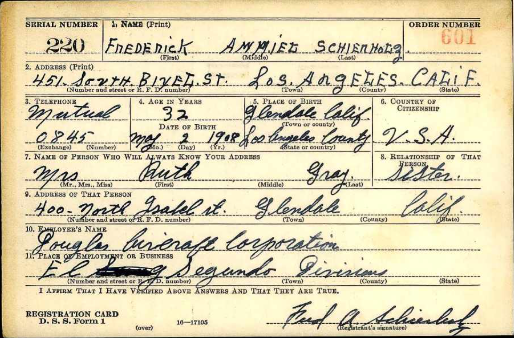 SERIAL NUMBER 1. NAME (Print) ORDER NUMBER
220 FREDERICK AMMIEL SCHIERHOLZ 601
(First) (Middle) (Last)
2. ADDRESS (Print)
451-SOUTH BIXEL ST. LOS ANGELES CALIF
(Number and street or R. F. D. number) (Town) (County) (State)
3. TELEPHONE 4. AGE IN YEARS 5. PLACE OF BIRTH 6. COUNTRY OF CITIZENSHIP
Mutual 32 Glendale Calif
DATE OF BIRTH (Town or county)
0845 May 2 1908 Los Angeles County U.S.A.
(Exchange) (Number) (Mo.) (Day) (Yr.) (State or country)
7. NAME OF PERSON WHO WILL ALWAYS KNOW YOUR ADDRESS 8. RELATIONSHIP OF THAT PERSON
Mrs Ruth Gray Sister.
(Mr., Mrs., Miss) (First) (Middle) (Last)
9. ADDRESS OF THAT PERSON
400-North Isabel st. Glendale Calif
(Number and street or R. F. D. number) (Town) (County) (State)
10. EMPLOYER'S NAME
Douglas Aircraft Corporation
11. PLACE OF EMPLOYMENT OR BUSINESS
El Segundo Divisions
(Number and street or R. F. D. number) (Town) (County) (State)
I AFFIRM THAT I HAVE VERIFIED ABOVE ANSWERS AND THAT THEY ARE TRUE.
REGISTRATION CARD
D. S. S. Form 1 (over) 16—17105 Fred A Schierholz
(Registrant's signature)